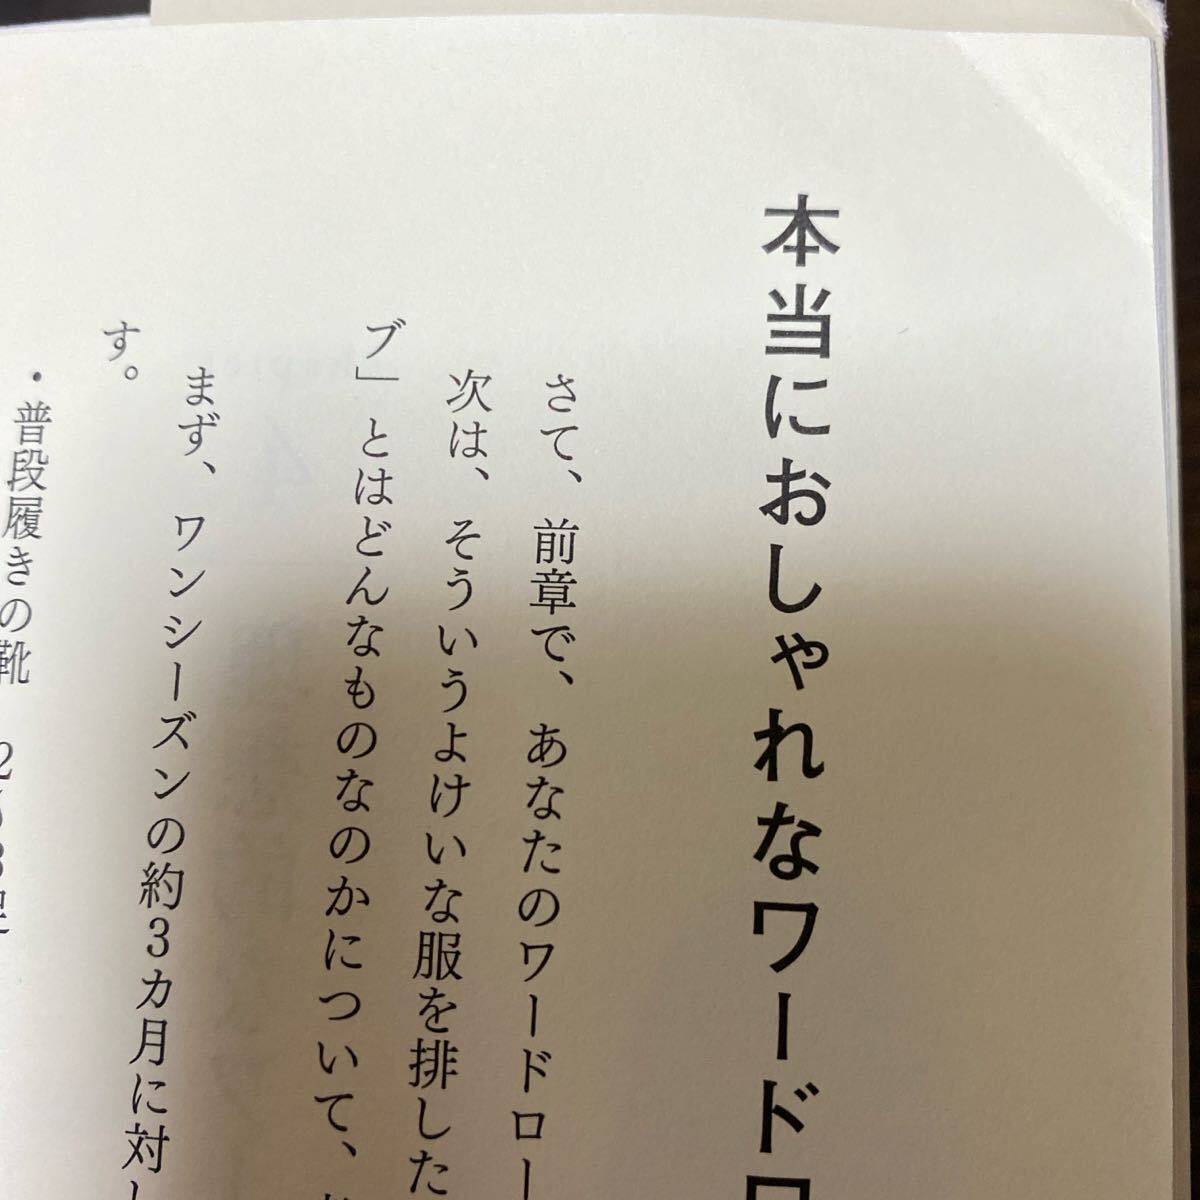 本当におしゃれなワードロ
さて、前章で、あなたのワードロー
次は、そういうよけいな服を排した
ブ」とはどんなものなのかについて、
まず、ワンシーズンの約3カ月に対し
す。
・普段履きの靴